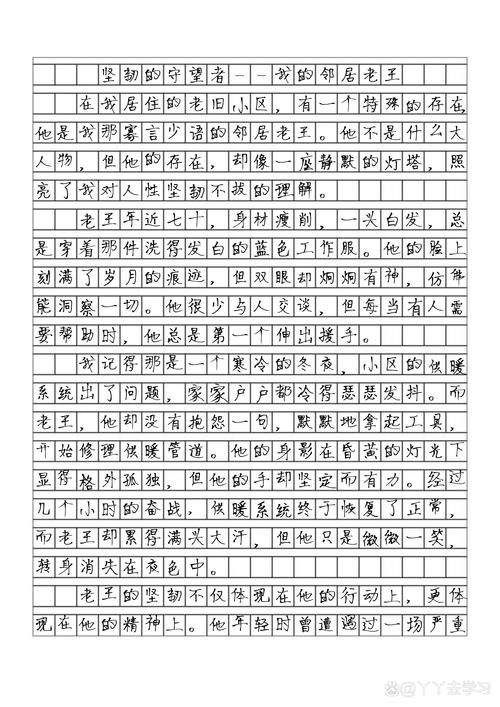 坚韧的守望者--我的邻居老王
在我居住的老旧小区，有一个特殊的存在，
他是我那寡言少语的邻居老王。他不是什么大
人物，但他的存在，却像一座静默的灯塔，照
亮了我对人性坚韧不拔的理解。
老王年近七十，身材瘦削，一头白发，总
是穿着那件洗得发白的蓝色工作服。他的脸上
刻满了岁月的痕迹，但双眼却炯炯有神，仿佛
能洞察一切。他很少与人交谈，但每当有人需
要帮助时，他总是第一个伸出援手。
我记得那是一个寒冷的冬夜，小区的供暖
系统出了问题，家家户户都冷得瑟瑟发抖。而
老王，他却没有抱怨一句，默默地拿起工具，
开始修理供暖管道。他的身影在昏黄的灯光下
显得格外孤独，但他的手却坚定而有力。经过
几个小时的奋战，供暖系统终于恢复了正常，
而老王却累得满头大汗，但他只是微微一笑，
转身消失在夜色中。
老王的坚韧不仅体现在他的行动上，更体
现在他的精神上。他年轻时曾遭遇过一场严重
@丫丫去学习